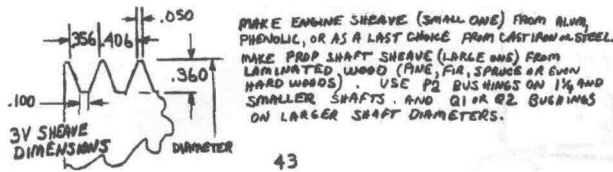 .050
.356 .406
.360
.100
3V SHEAVE
DIMENSIONS
DIAMETER
MAKE ENGINE SHEAVE (SMALL ONE) FROM ALUM,
PHENOLIC, OR AS A LAST CHOICE FROM CAST IRON OR STEEL.
MAKE PROP SHAFT SHEAVE (LARGE ONE) FROM
LAMINATED, WOOD (PINE, FIR, SPRUCE OR EVEN
HARD WOODS). USE P2 BUSHINGS ON 1¼ AND
SMALLER SHAFTS. AND Q1 OR Q2 BUSHINGS
ON LARGER SHAFT DIAMETERS.
43